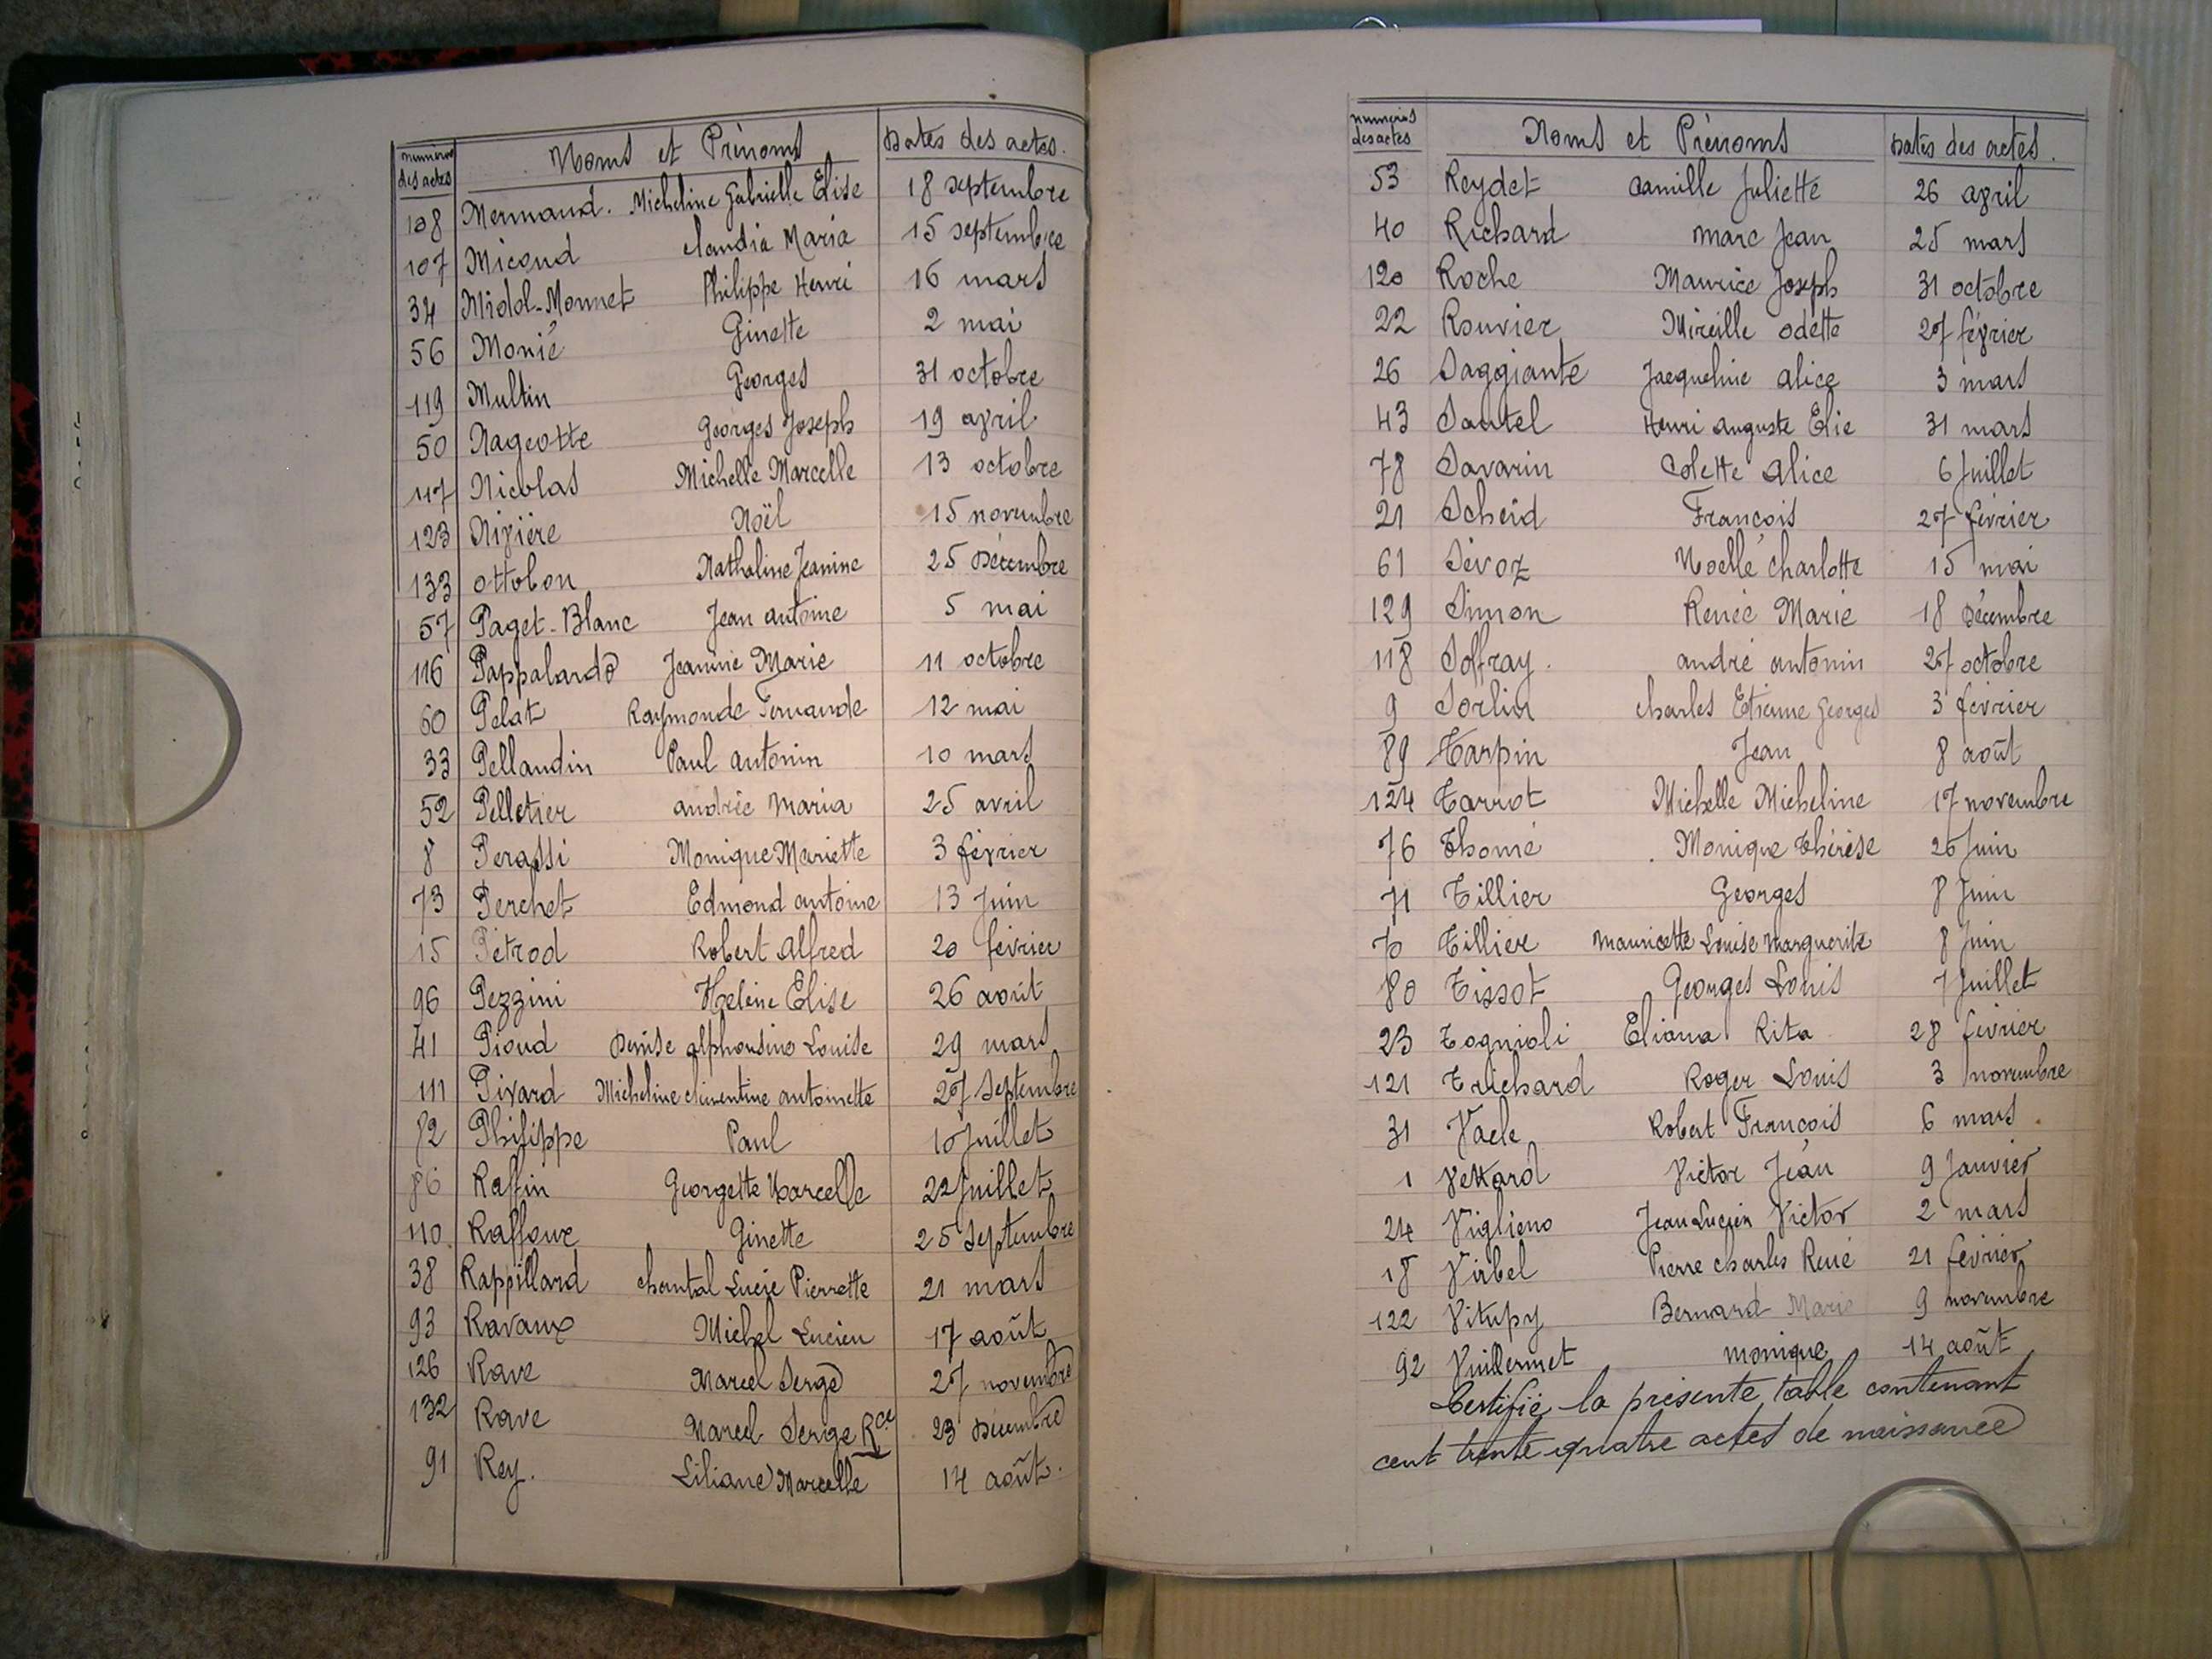 numéros des actes Noms et Prénoms Dates des actes.
108 Mermaud. Micheline Gabrielle Elise 18 septembre
107 Micoud Claudia Maria 15 septembre
34 Midol-Monnet Philippe Henri 16 mars
56 Monié Ginette 2 mai
119 Multin Georges 31 octobre
50 Nageotte Georges Joseph 19 avril
117 Nicolas Michelle Marcelle 13 octobre
123 Nivière Noël 15 novembre
133 Ottobon Nathaline Jeanine 25 Décembre
57 Paget-Blanc Jean Antoine 5 mai
116 Pappalardo Jeannie Marie 11 octobre
60 Pelat Raymonde Fernande 12 mai
33 Pellaudin Paul Antonin 10 mars
52 Pelletier Andrée Maria 25 avril
8 Perassi Monique Mariette 3 février
73 Perchet Edmond Antoine 13 Juin
15 Pétrod Robert Alfred 20 février
96 Pezzini Hélène Elise 26 août
41 Pioud Denise Alphonsine Louise 29 mars
111 Pivard Micheline Clémentine Antoinette 27 Septembre
82 Philippe Paul 10 Juillet
86 Raffin Georgette Marcelle 22 Juillet
110 Raffoux Ginette 25 Septembre
38 Rappillard Chantal Lucie Pierrette 21 mars
93 Ravaux Michel Lucien 17 août
126 Rave Marcel Serge 27 novembre
132 Rave Marcel Serge Rce 23 Décembre
91 Rey. Liliane Marcelle 14 août.
numéros des actes Noms et Prénoms Dates des actes.
53 Reydet Camille Juliette 26 avril
40 Richard Marc Jean 25 mars
120 Roche Maurice Joseph 31 octobre
22 Rouvier Mireille Odette 27 février
26 Saggiante Jacqueline Alice 3 mars
43 Sautel Henri Auguste Elie 31 mars
78 Savarin Colette Alice 6 Juillet
21 Scheid François 27 février
61 Sévoz Noelle Charlotte 15 mai
129 Simon Renée Marie 18 Décembre
118 Soffray. André Antonin 27 octobre
9 Sorlin Charles Etienne Georges 3 février
89 Tarpin Jean 8 août
124 Tarrot Michelle Micheline 17 novembre
76 Thomé Monique Thérèse 26 Juin
71 Tillier Georges 8 Juin
70 Tillier Mauricette Louise Marguerite 8 Juin
80 Tissot Georges Louis 7 Juillet
23 Tognioli Eliana Rita 28 février
121 Trichard Roger Louis 3 novembre
31 Vacle Robert François 6 mars
1 Vekard Victor Jean 9 Janvier
24 Viglieno Jean Lucien Victor 2 mars
18 Virbel Pierre Charles René 21 février
122 Vitupy Bernard Marie 9 novembre
92 Vuillermet Monique 14 août
Certifié la présente table contenant
cent trente quatre actes de naissance